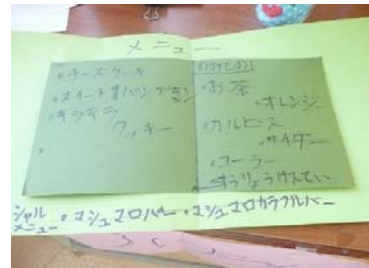 メニュー
・チーズケーキ
・スイートパンプキン
・キラキラ
クッキー
・お茶
・オレンジ
・カルピス
・サイダー
・コーラー
シャル
メニュー
・マシュマロバー・マシュマロカラフルバー